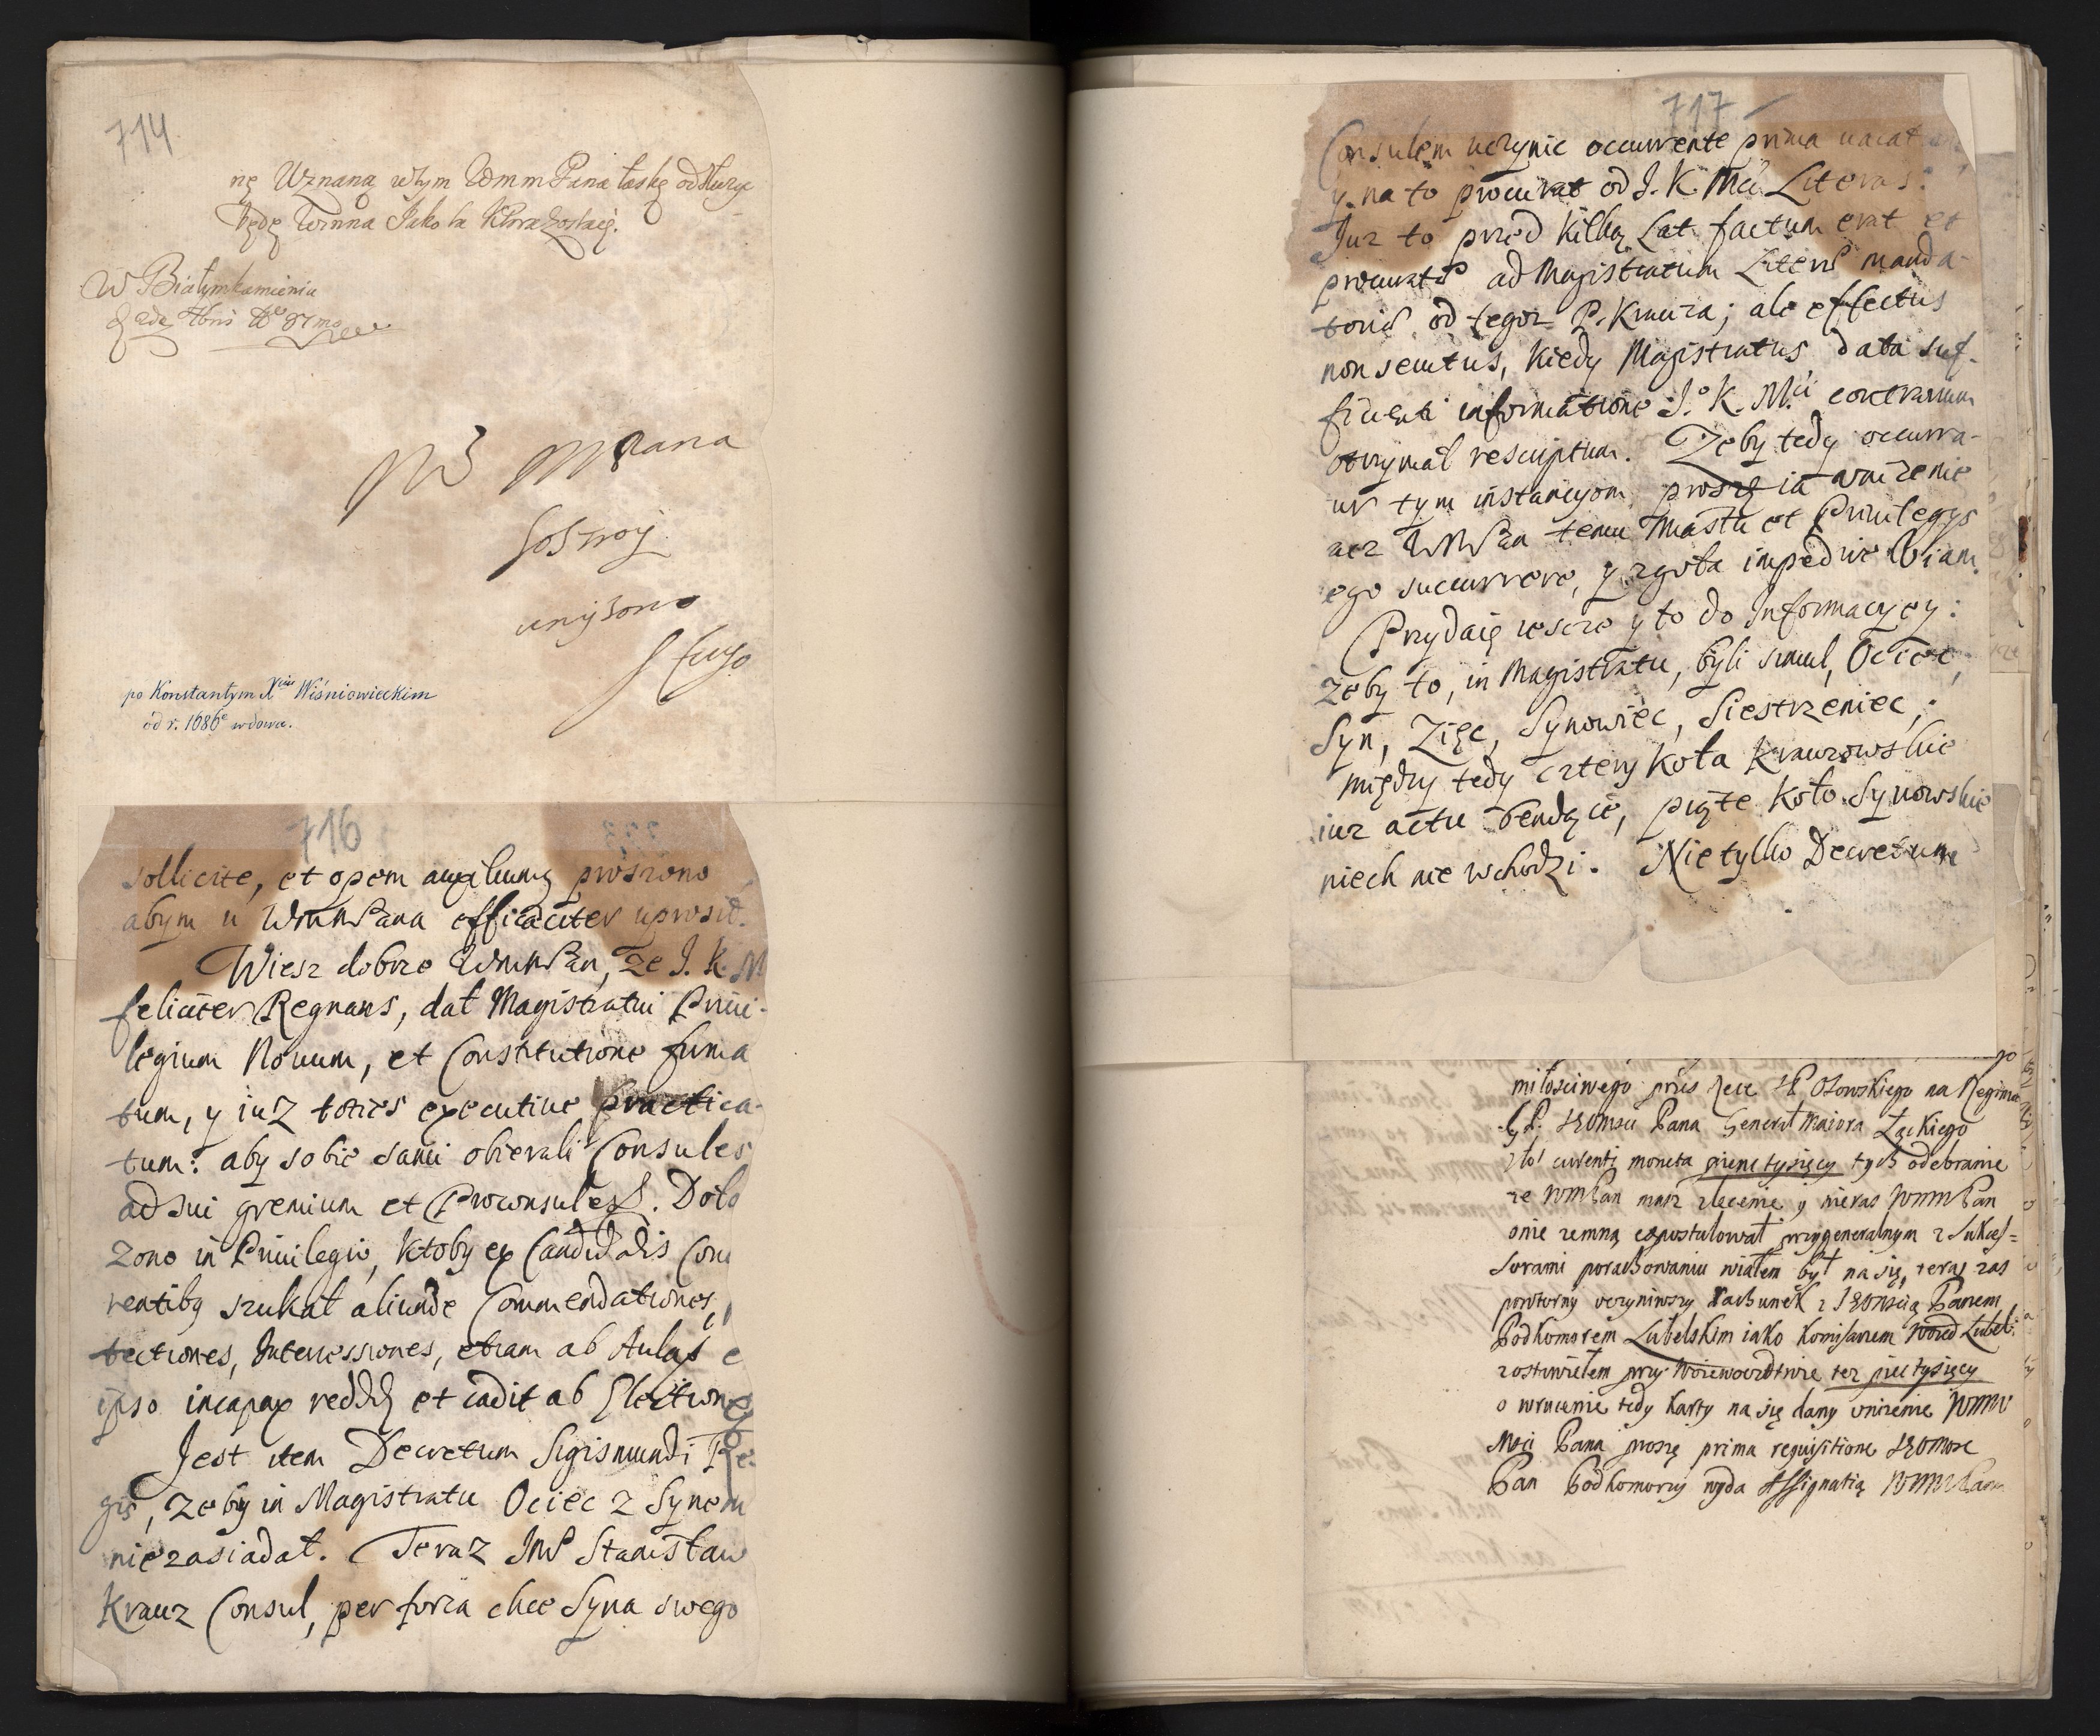 714
nę Uznaną wtym WmmPana łaskę odsłuzyc
będę Winna Jako ta Ktora zostaię.
W Białymkamieniu
WM MPana
unizona
Sługa
po Konstantym Xciu Wiśniowieckim
od r. 1686º wdowa.
716
sollicite, et opem auxiliumq proszono
abym u WmmPana efficaciter uprosił.
Wiesz dobrze WmmPan, Ze J. K. M
feliciter Regnans, dał Magistratui Priui-
legium Nouum, et Constitutione firma
tum, y iuz toties executiue practica-
tum: aby sobie sami obierali Consules
ad sui gremium et Proconsules. Doło
Zono in Priuilegio, Ktoby ex Candidatis
rentibq szukał aliunde Commendationes,
tectiones, Intercessiones, etiam ab Aula, e
ipso incapax reddit et cadit ab Electione
Jest item Decretum Sigismundi Re-
gis, Zeby in Magistratu Ociec z Synem
nie zasiadał. Teraz JmP Stanisław
Krauz Consul, per forza chce Syna swego
717
Consulem uczynic occurrente prima
y na to procurat od J. K. Mci Literas.
Juz to przed kilką Lat factum erat et
ad Magistratum Literis manda-
toriis od tegoz P. Krauza; ale effectus
non secutus, kiedy Magistratus data suf-
ficienti informatione J.º K. Mci contrarium
otrzymał rescriptum. Zeby tedy occurra-
tur tym instancyom, proszę ia unizenie
racz WMPan temu Miastu et Priuilegys
ego succurrere, y zgoła impedire Viam.
Przydaię ieszcze y to do Informacyey:
Zeby to, in Magistratu, byli simul, Ociec,
Syn, Zięc, Synowiec, Siestrzeniec,
między tedy cztery Koła Krauzowskie
iuz actu bendące, piąte Koło Synowskie
niech nie wchodzi. Nie tylko Decretum
miłosciwego przes Rece JP Ozowskiego na Regime
JP. JEOMsci Pana Generał Maiora Łąckiego
currenti moneta tysięcy tych odebranie
ze WmPan masz zlecenie, y nieraz WmmPan
onie zemną expostulował przygeneralnym z Sukces=
sorami porachowaniu wziołem był na się, teraz zas
powtorny vczyniwszy Rachunek z JEOMscią Panem
Podkomorem Lubelskim iako Komisarzem Woied Lubel:
zostawiełem przy Woiewodztwie tez pięc tysięcy
o wrucenie tedy karty na się dany vnizenie Wmm
Msci Pana proszę prima requisitione JEOMsc
Pan Podkomorzy wyda Assignatią WmmPanu